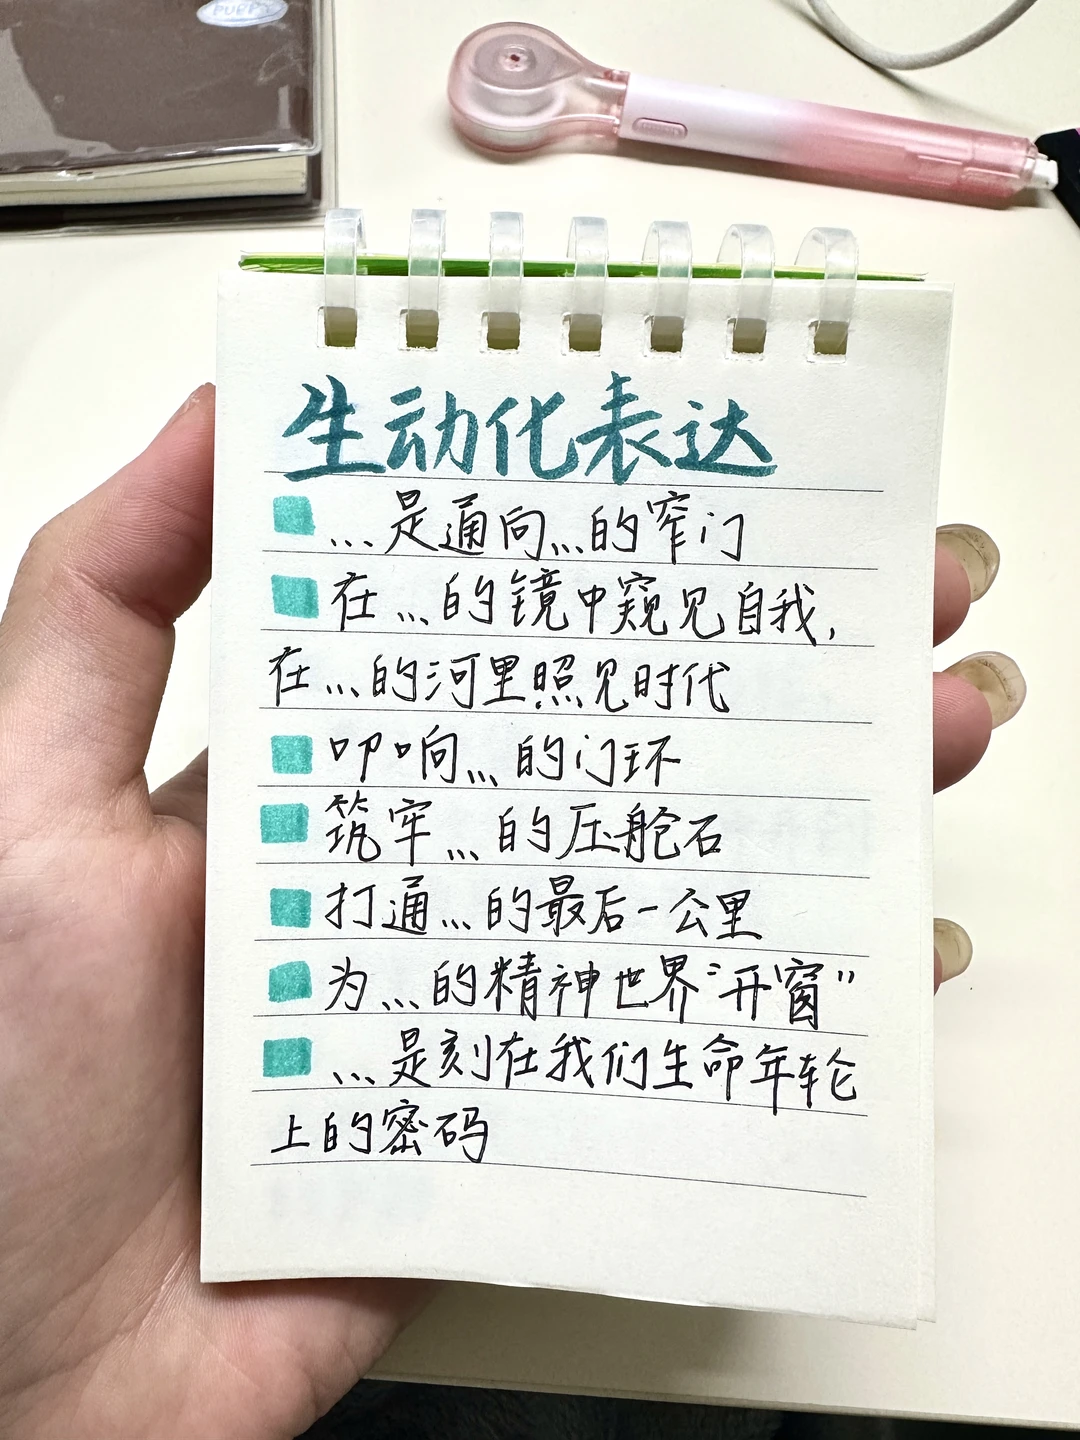 PUPPY
生动化表达
...是通向...的窄门
在...的镜中窥见自我,
在...的河里照见时代
叩响...的门环
筑牢...的压舱石
打通...的最后一公里
为...的精神世界“开窗”
...是刻在我们生命年轮
上的密码